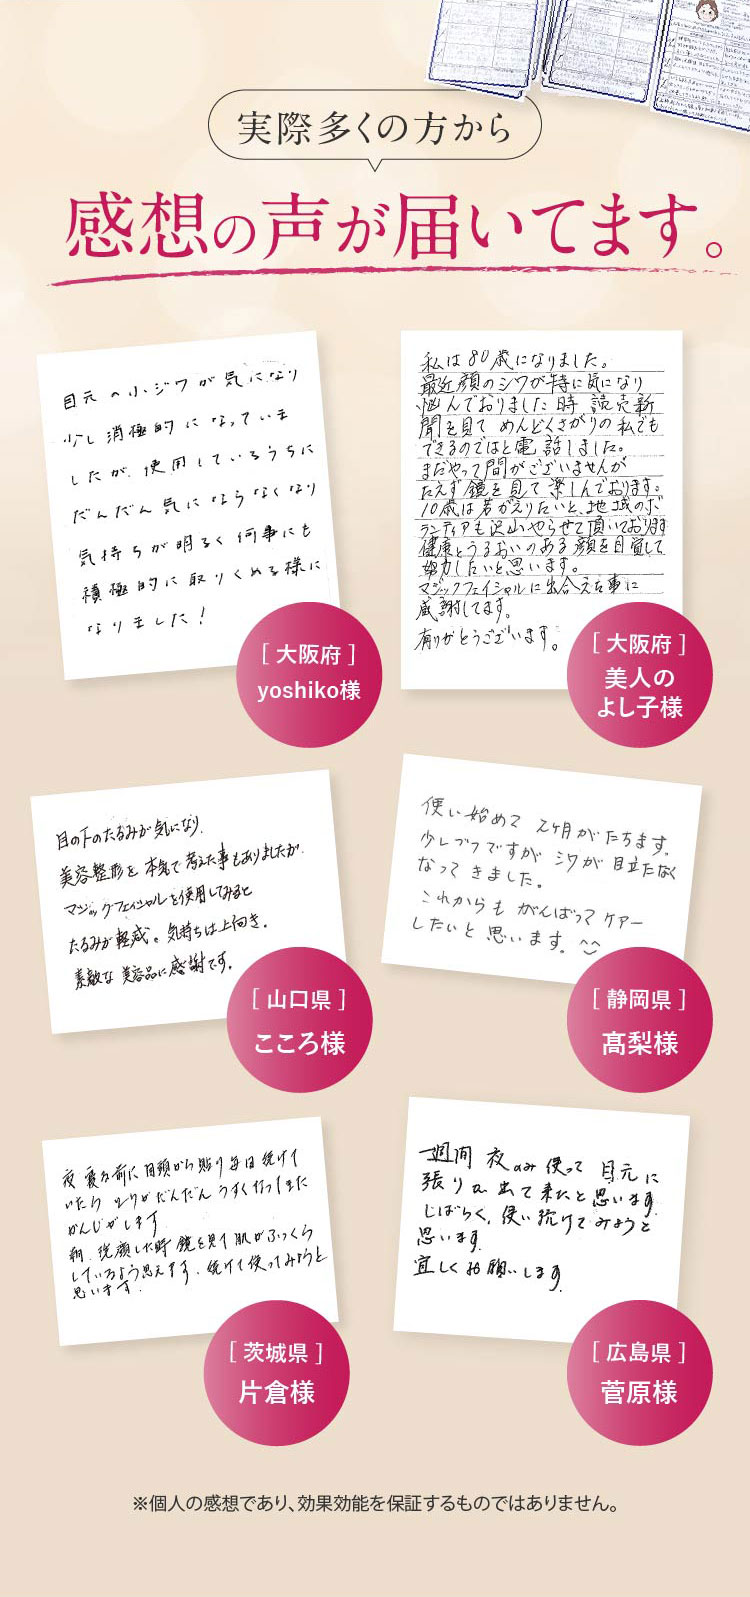 実際多くの方から
感想の声が届いてます。
目元の小ジワが気になり
少し消極的になっていま
したが、使用しているうちに
だんだん気にならなくなり
気持ちが明るく何事にも
積極的に取りくめる様に
なりました!
[大阪府]
yoshiko様
私は80歳になりました。
最近顔のシワが特に気になり
悩んでおりました時 読売新
聞を見て めんどくさがりの私でも
できるのではと電話しました。
まだやって間がございませんが
たえず鏡を見て楽しんでおります。
10歳は若がえりたいと、地域のボ
ランティアも沢山やらせて頂いております
健康とうるおいのある顔を目覚して
努力したいと思います。
マジックフェイシャルに出合えた事に
感謝してます。
有りがとうございます。
[大阪府]
美人の
よし子様
目の下のたるみが気になり、
美容整形を本気で考えた事もありましたが、
マジックフェイシャルを使用してみると
たるみが軽減。気持ちは上向き。
素敵な美容品に感謝です。
[山口県]
こころ様
使い始めて 2ヶ月がたちます。
少しづつですが シワが目立たなく
なってきました。
これからも がんばってケアー
したいと思います。^^
[静岡県]
髙梨様
夜寝る前に目頭から貼り毎日続けて
いたら シワがだんだんうすくなってきた
かんじがします
朝、洗顔した時鏡を見て肌がふっくら
しているよう思えます。続けて使ってみようと
思います。
[茨城県]
片倉様
一週間 夜のみ使って 目元に
張りが出て来たと思います。
しばらく、使い続けてみようと
思います。
宜しくお願いします。
[広島県]
菅原様
※個人の感想であり、効果効能を保証するものではありません。